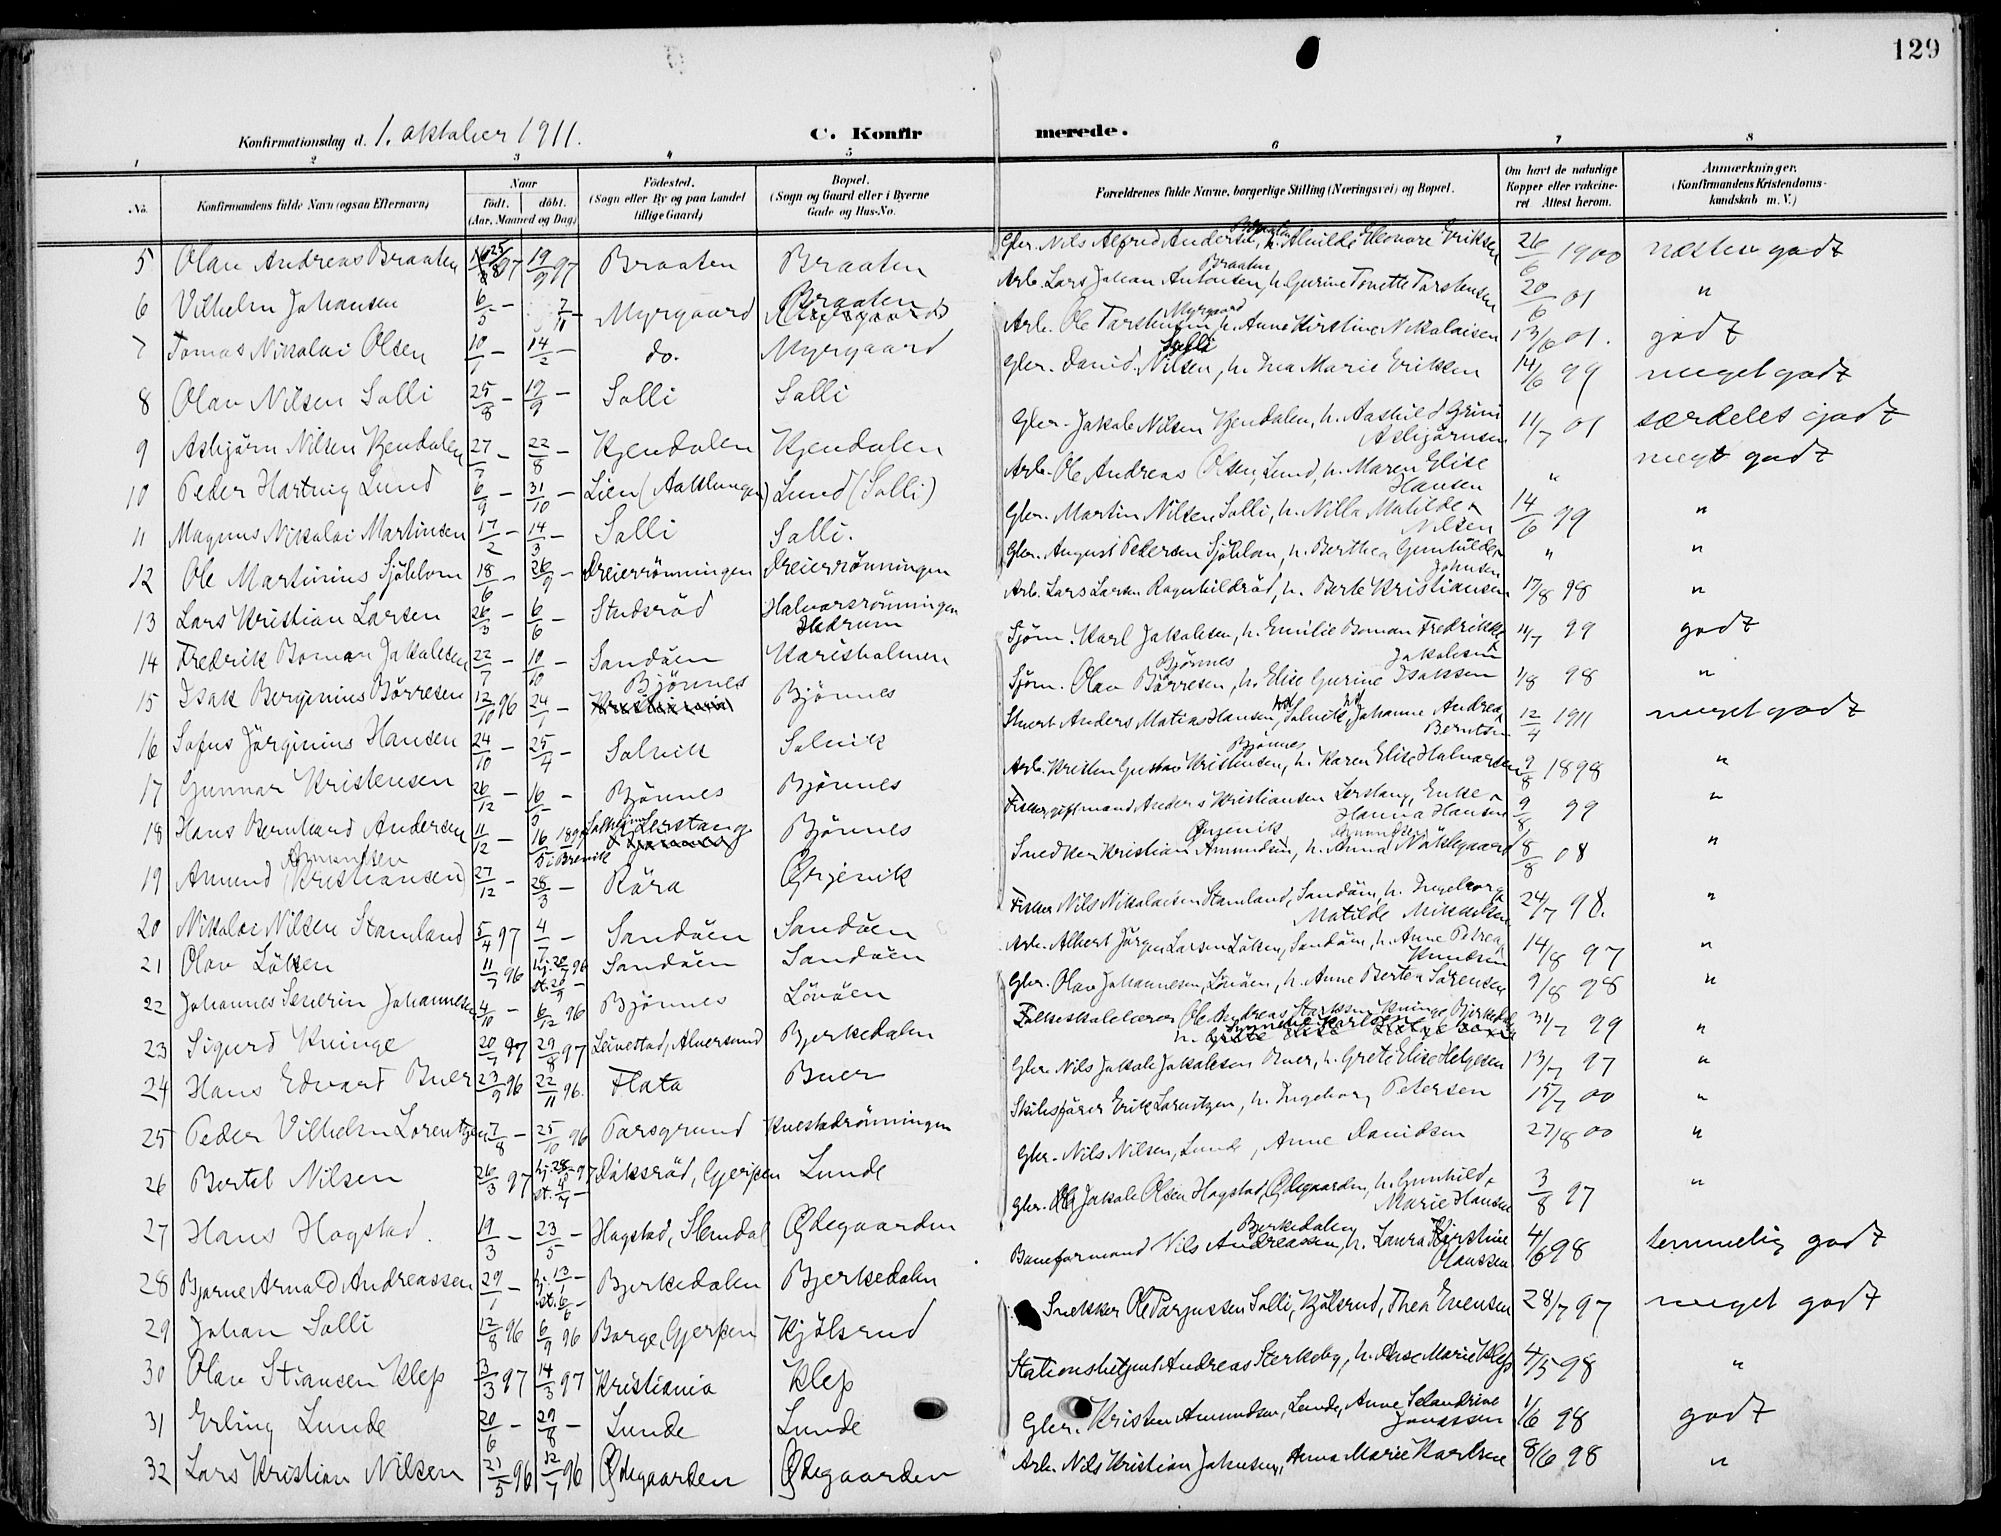 129
Konfirmationsdag d. 1. oktober 1911. C. Konfirmerede.
1 2 3 4 5 6 7 8
No. Konfirmandens fulde Navn (ogsaa Efternavn) Naar født. døbt. (Aar, Maaned og Dag) Fødested. (Sogn eller By og paa Landet tillige Gaard) Bopæl. (Sogn og Gaard eller i Byerne Gade og Hus-No. Forældrenes fulde Navne, borgerlige Stilling (Næringsvei) og Bopæl. Om havt de naturlige Kopper eller vaksineret Attest herom. Anmærkninger. (Konfirmandens Kristendomskundskab m. V.)
5 Olav Andreas Braaten 25/8 97 19/9 97 Braaten Braaten Gbr. Nils Alfred Andersen Braaten, h. Alvilde Eleonore Eriksen 26/6 1900 næsten godt
6 Vilhelm Johansen 6/5 – 7/11 – Myrgaard Braaten Arb. Lars Johan Antonsen Braaten, h. Gurine Tonette Torstensen 20/6 01 "
7 Tomas Nikolai Olsen 10/1 – 14/2 – do. Myrgaard Arb. Ole Torstensen Myrgaard, h. Anne Kirstine Nikolaisen 13/6 01. godt
8 Olav Nilsen Solli 25/8 – 19/9 – Solli Solli Gbr. David Nilsen Solli, h. Ina Marie Eriksen 14/6 99 meget godt
9 Asbjørn Nilsen Kjendalen 27/7 – 22/8 – Kjendalen Kjendalen Gbr. Jakob Nilsen Kjendalen, h. Aashild Grini Asbjørnsen 11/7 01 særdeles godt
10 Peder Hartvig Lund 6/9 – 31/10 – Lien (Aaklungen) Lund (Solli) Arb. Ole Andreas Olsen Lund, h. Maren Elise Hansen " meget godt
11 Magnus Nikolai Martinsen 17/2 – 14/3 – Solli Solli. Gbr. Martin Nilsen Solli, h. Nilla Matilde Nilsen 14/6 99 "
12 Ole Martinius Sjøblom 18/6 – 26/9 – Dreierrønningen Dreierrønningen Gbr. August Petersen Sjøblom, h. Berthea Gunhilde Johnsen " "
13 Lars Kristian Larsen 26/3 – 6/6 – Stulsrød Halvorsrønningen Hedrum Arb. Lars Larsen Ragnhildrød, h. Berte Kristiansen 17/8 98 "
14 Fredrik Boman Jakobsen 22/7 – 10/10 – Sandøen Karisholmen Sjøm. Karl Jakobsen, h. Emilie Boman Fredrikke Jakobsen 11/7 99 godt
15 Isak Bergenius Børresen 12/10 96 24/1 – Bjønnes Bjønnes Sjøm. Olav Børresen Bjønnes, h. Elise Gurine Isaksen 1/8 98 "
16 Sofus Jørginius Hansen 24/10 – 25/4 – Solvik Solvik Stuert Anders Matias Hansen, Solvik, Johanne Andrea Berntsen 12/4 1911 meget godt
17 Gunnar Kristensen 26/12 – 16/5 – Bjønnes Bjønnes Arb. Kristen Gustav Kristensen Bjønnes, h. Karen Elise Halvorsen 9/8 1898 "
18 Hans Bernhard Andersen 11/12 – 16/5 1897 i Brevik Lerstang Bjønnes Fisker giftmand Anders Kristiansen Lerstang, Enke Hanna Hansen 9/8 99 "
19 Amund Amundsen (Kristiansen) 27/12 – 28/3 – Røra Ørjevik Snedker Kristian Amundsen Ørjevik, h. Anna Nøklegaard 8/8 08 "
20 Nikolai Nilsen Stamland 5/4 97 4/7 – Sandøen Sandøen Fisker Nils Nikolaisen Stamland, Sandøen, h. Ingeborg Matilde Mikaelsen 24/7 98. "
21 Olav Løksen 11/7 96 hj. 20/7 96 st. 20/9 – Sandøen Sandøen Arb. Albert Jørgen Larsen Løksen, Sandøen, h. Anne Petrea Knudsen 14/8 97 "
22 Johannes Severin Johannesen 4/10 – 6/12 96 Bjønnes Løvøen Gbr. Olav Johannesen, Løvøen, h. Anne Bertea Sørensen 9/8 98 "
23 Sigurd Kvinge 20/7 97 29/8 97 Leivestad, Alversund Bjerkedalen Folkeskolelærer Ole Andreas Kvinge, Bjerkedalen h. Karlsen 31/7 99 "
24 Hans Edvard Buer 23/9 96 22/11 96. Flata Buer Gbr. Nils Jakob Jakobsen Buer, h. Grete Elise Helgesen 13/7 97 "
25 Peder Vilhelm Lorentzen 7/8 – 25/10 96 Porsgrund Knestadrønningen Skibsfører Erik Lorentzen, h. Ingeborg Petersen 15/7 00 "
26 Bertel Nilsen 26/3 97 hj. 28/3 97 st. 4/7 – Doksrød, Gjerpen Lunde Gbr. Nils Nilsen, Lunde, Anne Davidsen 27/8 00 "
27 Hans Hogstad. 19/3 – 23/5 – Hogstad, Slemdal Ødegaarden Gbr. Jakob Olsen Hogstad, Ødegaarden, h. Gunhild Marie Hansen 3/8 97 "
28 Bjarne Arnold Andreassen 29/1 – hj. 13/1 – st. 6/6 – Bjerkedalen Bjerkedalen Baneformand Nils Andreassen Bjerkedalen, h. Laura Kirstine Olaussen 4/6 98 temmelig godt
29 Johan Solli 12/8 96 6/9 96 Borge, Gjerpen Kjølsrud Snekker Ole Torjussen Solli, Kjølsrud, Thea Evensen 28/7 97 meget godt
30 Olav Stiansen Klep 3/3 97 14/3 97 Kristiania Klep Stationsbetjent Andreas Sterkeby, h. Aase Marie Klep 4/5 98 "
31 Erling Lunde 20/6 – 29/8 – Lunde Lunde Gbr. Kristen Amundsen, Lunde, Anne Selandrine Jonassen 1/6 98 godt
32 Lars Kristian Nilsen 21/5 96 12/7 96 Ødegaarden Ødegaarden Arb. Nils Kristian Johnsen, Anna Marie Karlsen 8/6 98 "